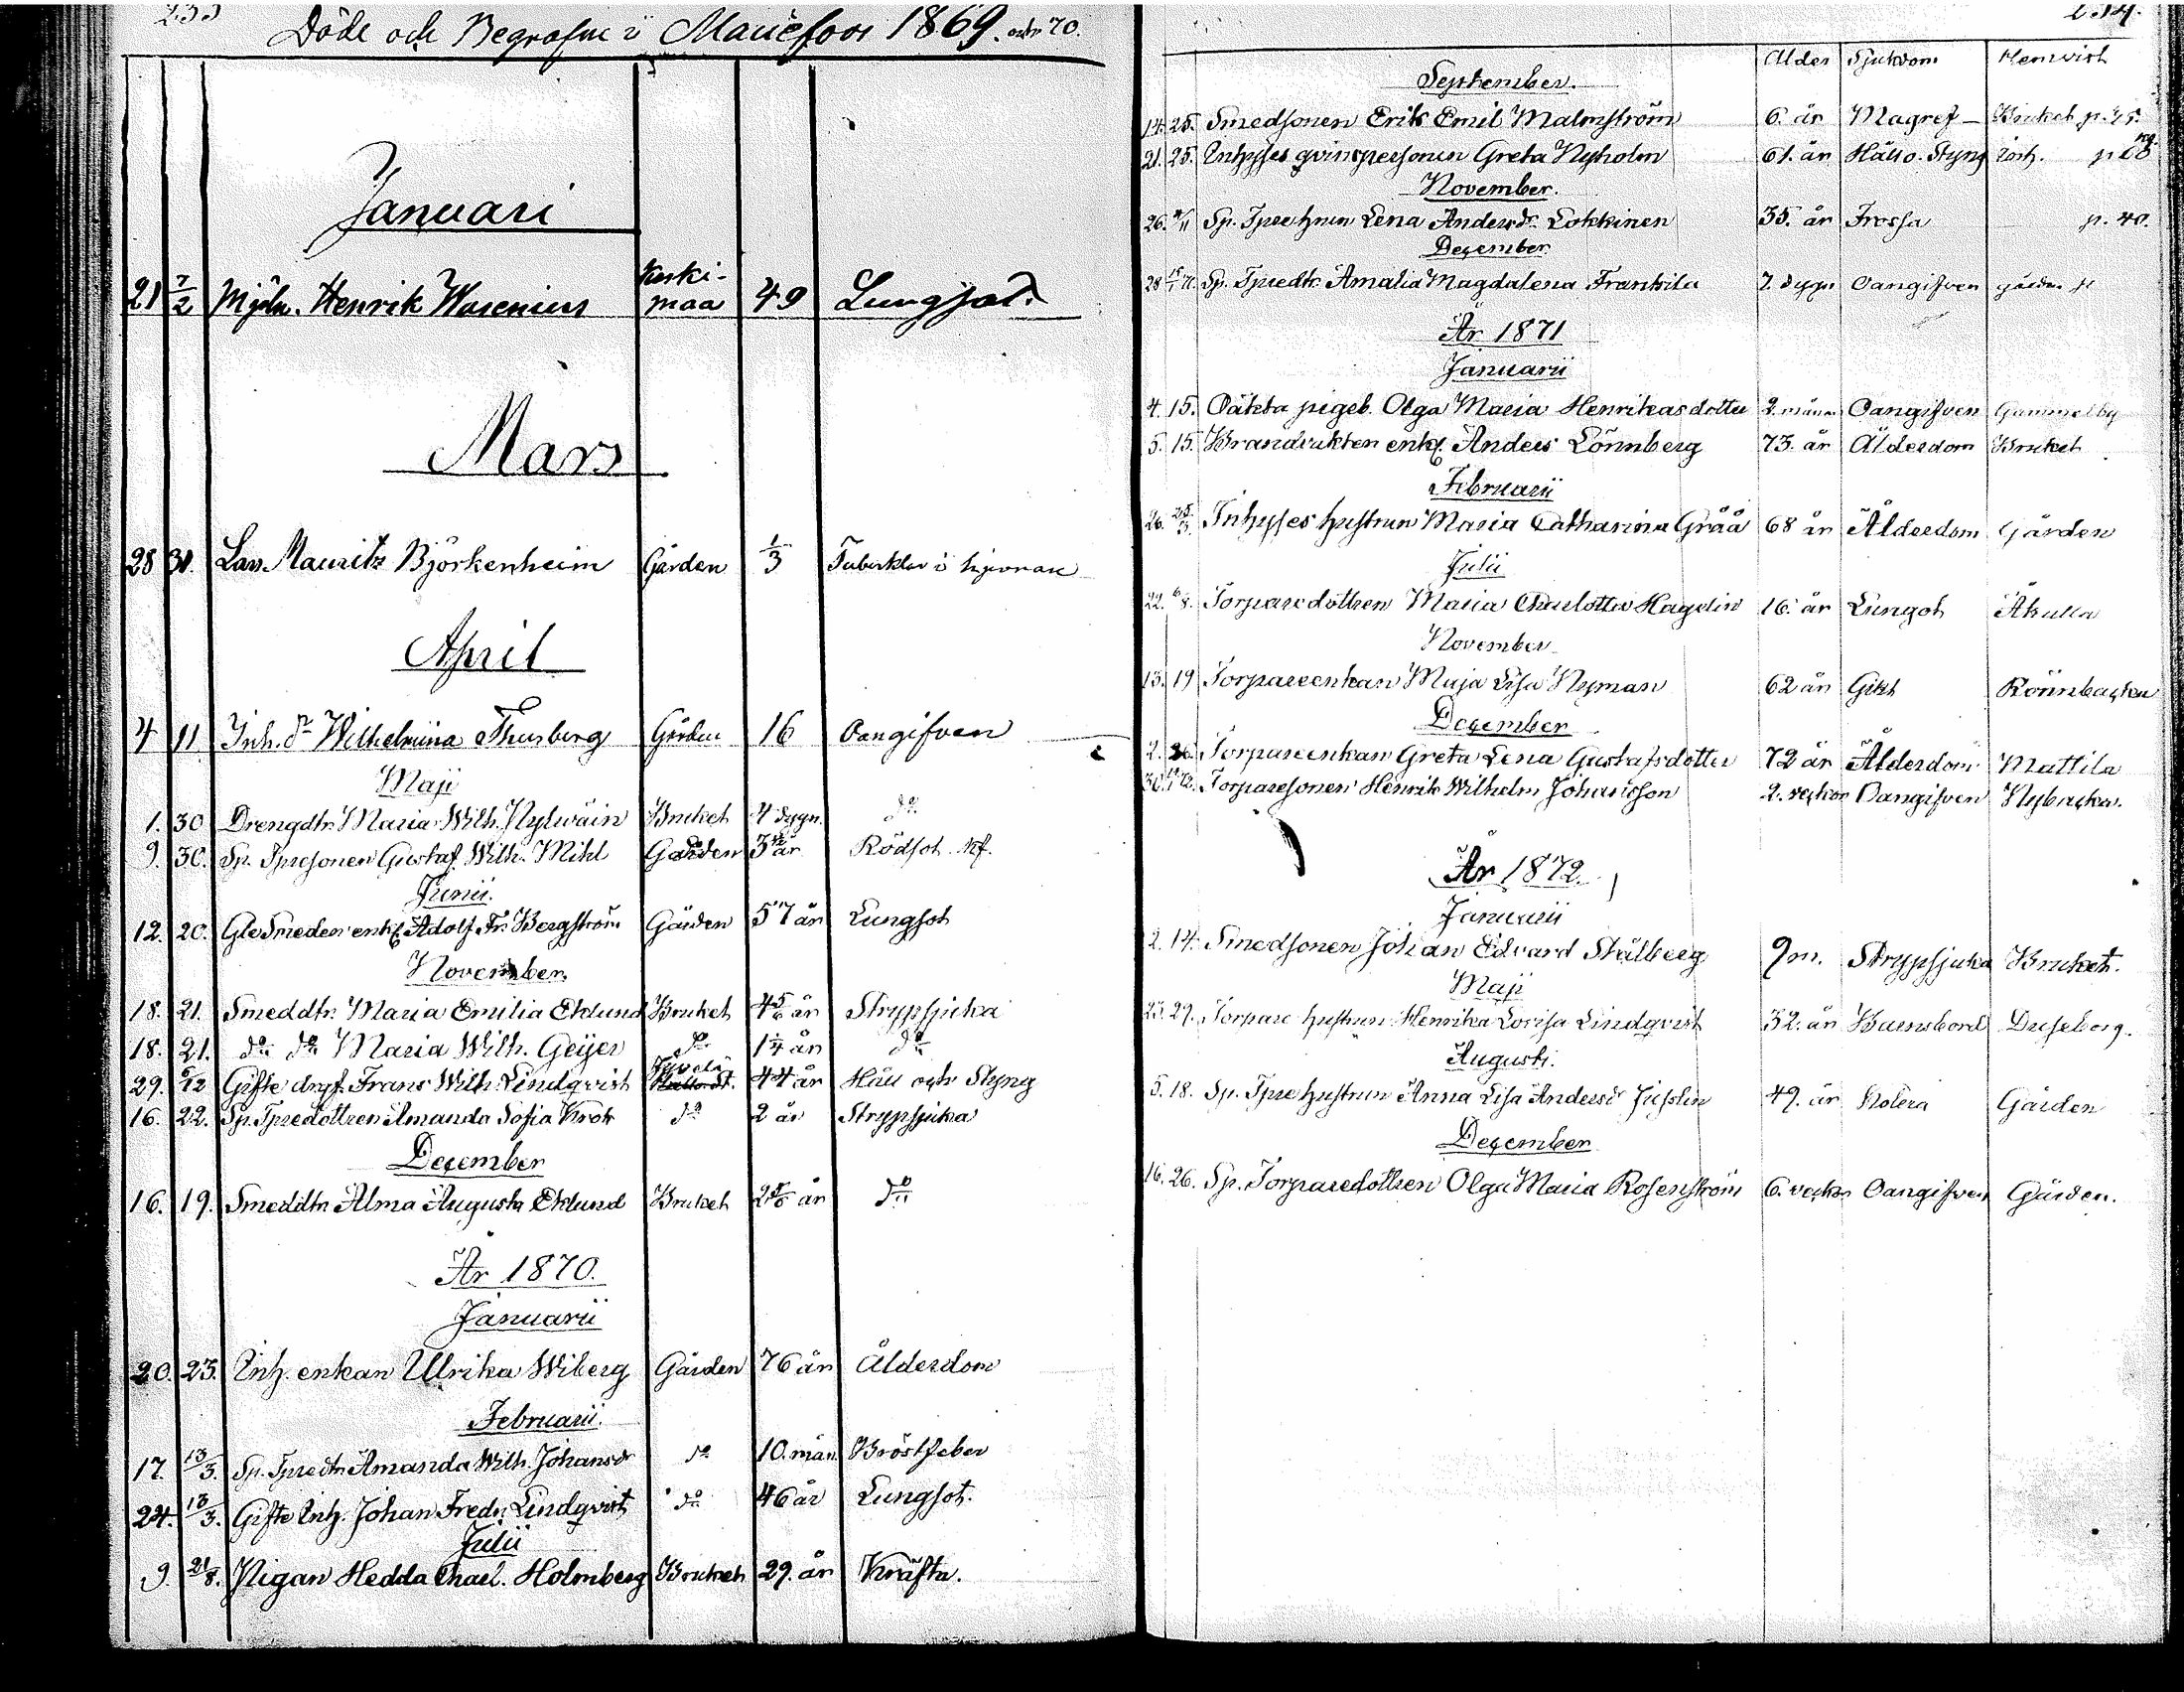 233
Döde och Begrafne i Mariefors 1869. och 70.
Januari
21 7/2 Mjöln. Henrik Wasenius Keski-maa 49 Lungsot.
Mars
28 31. Lars Mauritz Björkenheim Gården 1/3 Tuberkler i hjernan
April
4 11 Inh. dr Wilhelmina Thusberg Gården 16 Oangifven
Maji
1. 30 Drengdtr. Maria Wilh. Nylwäin Bruket 4 dygn. do
9. 30. Sp. Tpresonen Gustaf Wilh. Mihl Gården 3 år Rödsot
Junii.
12. 20. Gle Smeden enkl. Adolf Fr. Bergström Gården 57 år Lungsot
November
18. 21. Smeddtr. Maria Emilia Eklund Bruket 4 5/6 år Strypsjuka
18. 21. do do Maria Wilh. Geijer do 1 1/4 år do
29. 6/12 Gifte drgs. Frans Wilh. Lindqvist 44 år Håll och Styng
16. 22. Sp. Tpredottren Amanda Sofia Krok do 2 år Strypsjuka
December
16. 19. Smeddtr Alma Augusta Eklund Bruket 2 5/6 år do
År 1870.
Januarii
20. 23. Inh. enkan Ulrika Wiberg Gården 76 år Ålderdom
Februarii.
17. 13/3. Sp. Tpredtr Amanda Wilh. Johansdr do 10. mån. Bröstfeber
24. 13/3. Gifte Inh. Johan Fredr. Lindqvist do 46 år Lungsot.
Julii
9. 21/8. Pigan Hedda Charl. Holmberg Bruket 29. år Kräfta.
234.
Ålder Sjukdom Hemvist
September.
14. 25. Smedsonen Erik Emil Malmström 6. år Magref – Bruket p. 45.
21. 25. Inhyses qvinspersonen Greta Nyholm 61. år Håll o. Styng Inh.
November.
26. Sp. Tprehrun Lena Andersdr. Lokkinen 35. år Frossa p. 40.
December
28 15/1 71. Sp. Tpredtr. Amalia Magdalena Frankila 7. dygn Oangifven gården p
År 1871
Januarii
4. 15. Oäkta pigeb. Olga Maria Henrikasdotter 2. mån Oangifven Gammelby
5. 15. Brandvakten enkl. Anders Lönnberg 73. år Ålderdom Bruket
Februarii
26. 25/3. Inhyses hustrun Maria Catharina Gråå 68 år Ålderdom Gården
Julii
22. 6/8. Torparedottren Maria Charlotta Hagelin 16. år Lungsot Åkulla
November
13. 19 Torpareenkan Maja Lisa Nyman 62 år Gikt Rönnbacken
December
2. 26. Torpareenkan Greta Lena Gustafsdotter 72 år Ålderdom Mattila
30. Torparesonen Henrik Wilhelm Johansson 2. veckor Oangifven Nybacka.
År 1872.
Januarii
2. 14. Smedsonen Johan Edvard Stålberg 9 m. Strypsjuka Bruket.
Maji
23. 29. Torpare hustrun Henrika Lovisa Lindqvist 32. år Barnsbörd Duseborg.
Augusti.
5. 18. Sp. Tpre hustrun Anna Lisa Andersdr Juslin 49. år Kolera Gården
December
16. 26. Sp. Torparedottren Olga Maria Rosenström 6. veckor Oangifven Gården.